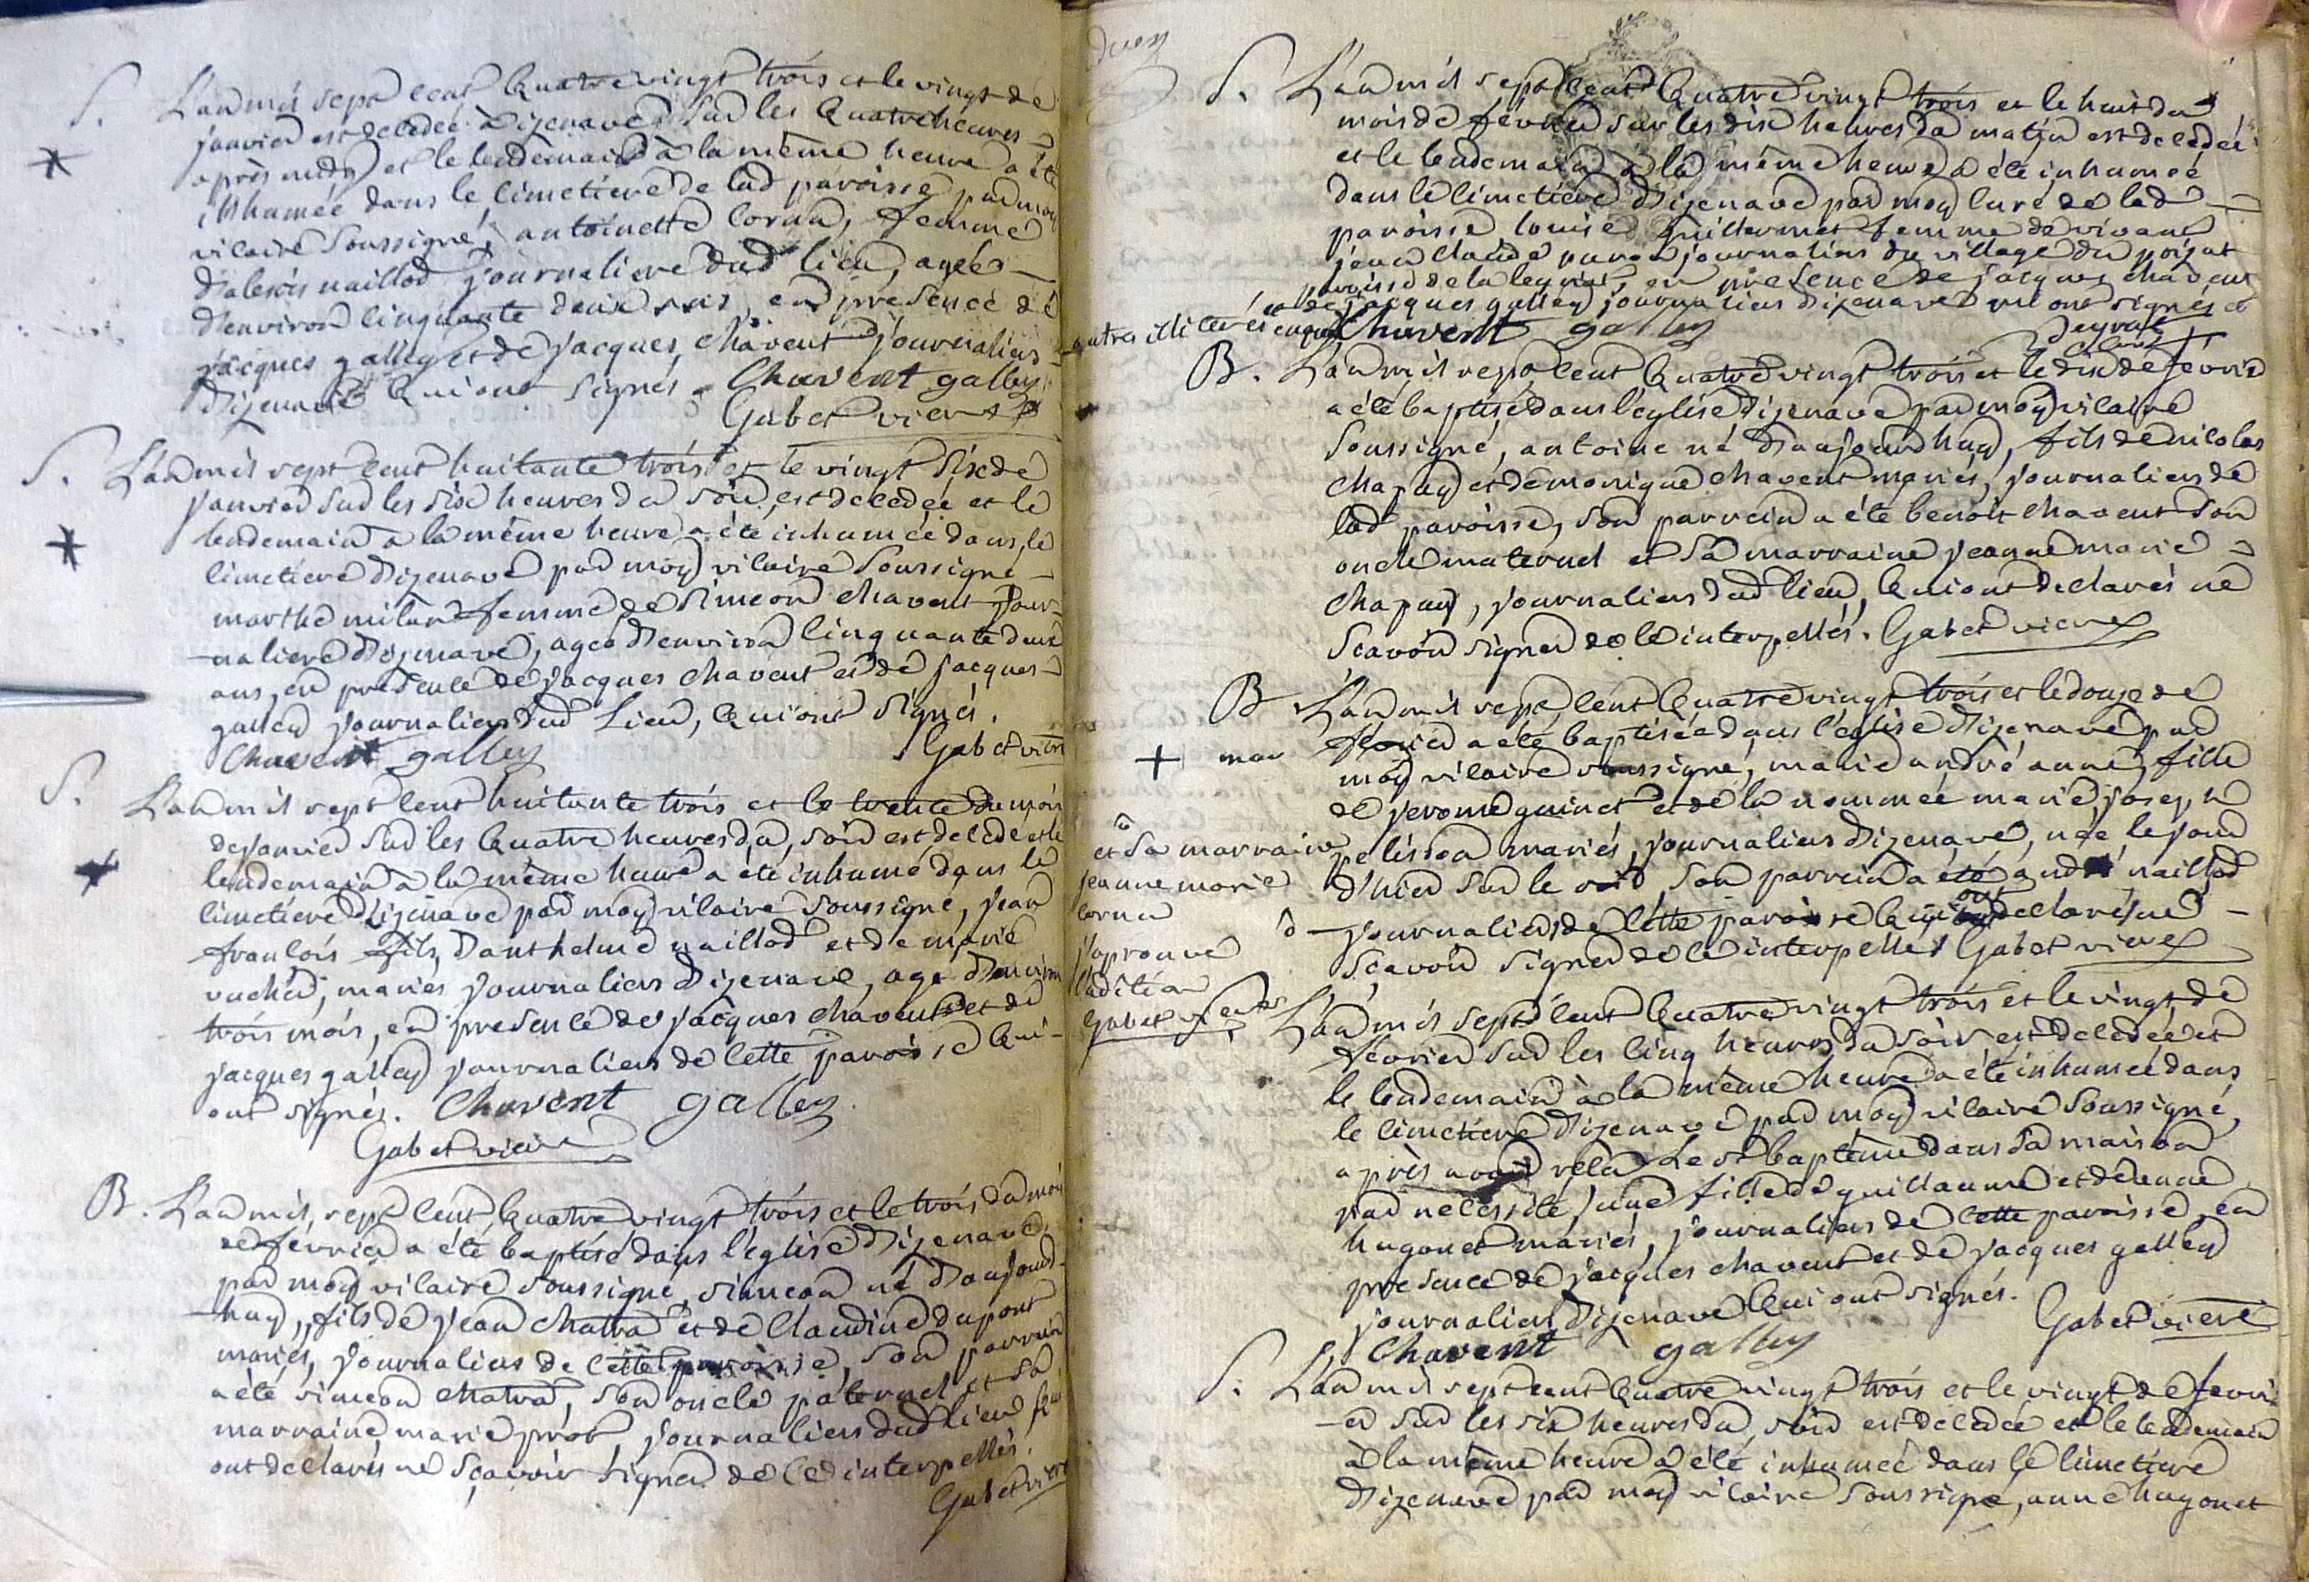 S. L'an mil sept cent quatre vingt trois et le vingt de
janvier est décédée à Izenave sur les quatre heures
après midy et le lendemain à la même heure a été
inhumée dans le cimetiere de lad paroisse par moy
vicaire soussigné, antoinette cornu, femme
d'alexis maillod journaliere dud lieu, agée
d'environ cinquante deux ans, en présence de
jacques galley et de jacques chavent journaliers
d'izenave qui ont signés. Chavent galley
Gabet vicre
S. L'an mil sept cent huitante trois et le vingt six de
janvier sur les six heures du soir, est décédée et le
lendemain a la même heure a été inhumée dans le
cimetiere d'izenave par moy vicaire soussigné
marthe milan femme de simeon chavent jour-
-naliere d'izenave, agée d'environ cinquante deux
ans, en présence de jacques chavent et de jacques
galley journaliers dud lieu, qui ont signés.
Chavent galley Gabet vicre
S. L'an mil sept cent huitante trois et le trente du mois
de janvier sur les quatre heures du soir est décédé et le
lendemain à la même heure a été inhumé dans le
cimetiere d'izenave par moy vicaire soussigné, jean
françois fils d'anthelme maillod et de marie
vuched, mariés journaliers d'izenave, agé d'environ
trois mois, en présence de jacques chavent et de
jacques galley journaliers de cette paroisse qui
ont signés. Chavent galley
Gabet vicre
B. L'an mil sept cent quatre vingt trois et le trois du mois
de fevrier a été baptisé dans l'église d'izenave
par moy vicaire soussigné, simeon né d'aujourd-
-huy, fils de jean chatra et de claudine dupont
mariés, journaliers de cette paroisse, son parrain
a été simeon chatra, son oncle paternel et sa
marraine marie prost journaliers dud lieu qui
ont declarés ne sçavoir signer de ce interpellés.
Gabet vicre
S. L'an mil sept cent quatre vingt trois et le huit du
mois de fevrier sur les dix heures du matin est décédée
et le lendemain à la même heure a été inhumée
dans le cimetiere d'izenave par moy curé de lad
paroisse, louise guillermet femme de vivant
jean claude journalier du village du poizat
paroisse de la leyriat, en présence de jacques chavent
et de jacques galley journaliers d'izenave qui ont signés
Chavent galley
B. L'an mil sept cent quatre vingt trois et le dix de fevrier
a été baptisé dans l'église d'izenave par moy vicaire
soussigné, antoine né d'aujourd'huy, fils de nicolas
chapuy et de monique chavent mariés, journaliers de
lad paroisse, son parrain a été benoit chavent son
oncle maternel et sa marraine jeanne marie
chapuy, journaliers dud lieu, qui ont declarés ne
scavoir signer de ce interpellés. Gabet vicre
B L'an mil sept cent quatre vingt trois et le douze de
fevrier a été baptisée dans l'église d'izenave par
moy vicaire soussigné, marie andré anne, fille
de jerome guinet et de la nommée marie joseph
pelisson mariés, journaliers d'izenave, née le jour
d'hier sur le soir, son parrain a été andré maillod
journaliers de cette paroisse qui ont declarés ne
sçavoir signer de ce interpellés Gabet vicre
et sa marraine
jeanne marie
cornu
j'aprouve
l'adition
Gabet vicre
L'an mil sept cent quatre vingt trois et le vingt de
fevrier sur les cinq heures du soir est décédée et
le lendemain à la même heure a été inhumée dans
le cimetiere d'izenave par moy vicaire soussigné,
après avoir reçu le st baptême dans sa maison
par necessité, une fille de guillaume et d'anne
hugonet mariés, journaliers de cette paroisse, en
présence de jacques chavent et de jacques galley
journaliers d'izenave qui ont signés.
Chavent galley Gabet vicre
S. L'an mil sept cent quatre vingt trois et le vingt de fevri-
-er sur les six heures du soir est décédée et le lendemain
à la même heure a été inhumée dans le cimetiere
d'izenave par moy vicaire soussigné, anne hugonet